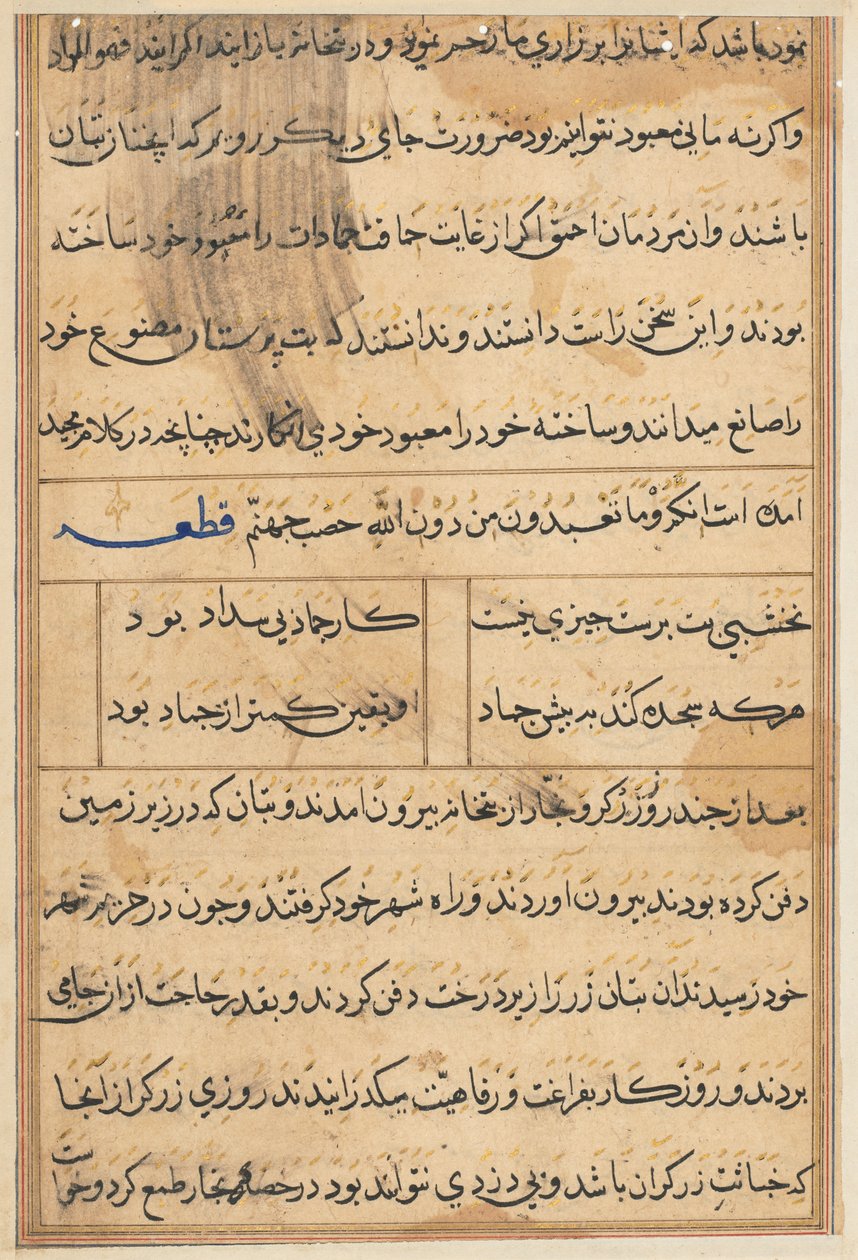 نمود باشد که ایشانرا بر زاری ما رحم نمویند و در بتخانه باز ایند اکر ایند فهو المراد
واکرنه مابی معبود نتوانیم بود ضرورت جای دیکر رویم که اینجناز بتان
باشند وان مردمان احمق اکر از غایت حماقت جمادات را معبود خود ساخته
بودند و این سخن راست دانستند و ندانستند که بت پرستان مصنوع خود
را صانع میدانند و ساخته خود را معبود خودی انکارند چنانچه در کلام مجید
امده است انکم وما تعبدون من دون الله حصب جهنّم قطعه
نخشبی بت برست جیزی نیست کار جمادی بی سداد بود
هرکه سجده کند به بیش جماد او بیقین کمتر از جماد بود
بعد از جند روز زرکر و نجّار از بتخانه بیرون امدند و بتان که در زیر زمین
دفن کرده بودند بیرون اوردند و راه شهر خود کرفتند و جون در حریم شهر
خود رسیدند ان بتان زر را زیر درخت دفن کردند و بقدر حاجت از ان جامی
بردند و روزکار بفراغت و رفاهیّت میکذرانیدند روزی زرکر از انجا
که خباثت زرکران باشد و بی دزدی نتوانند بود در حصه نجار طمع کرد و خواست